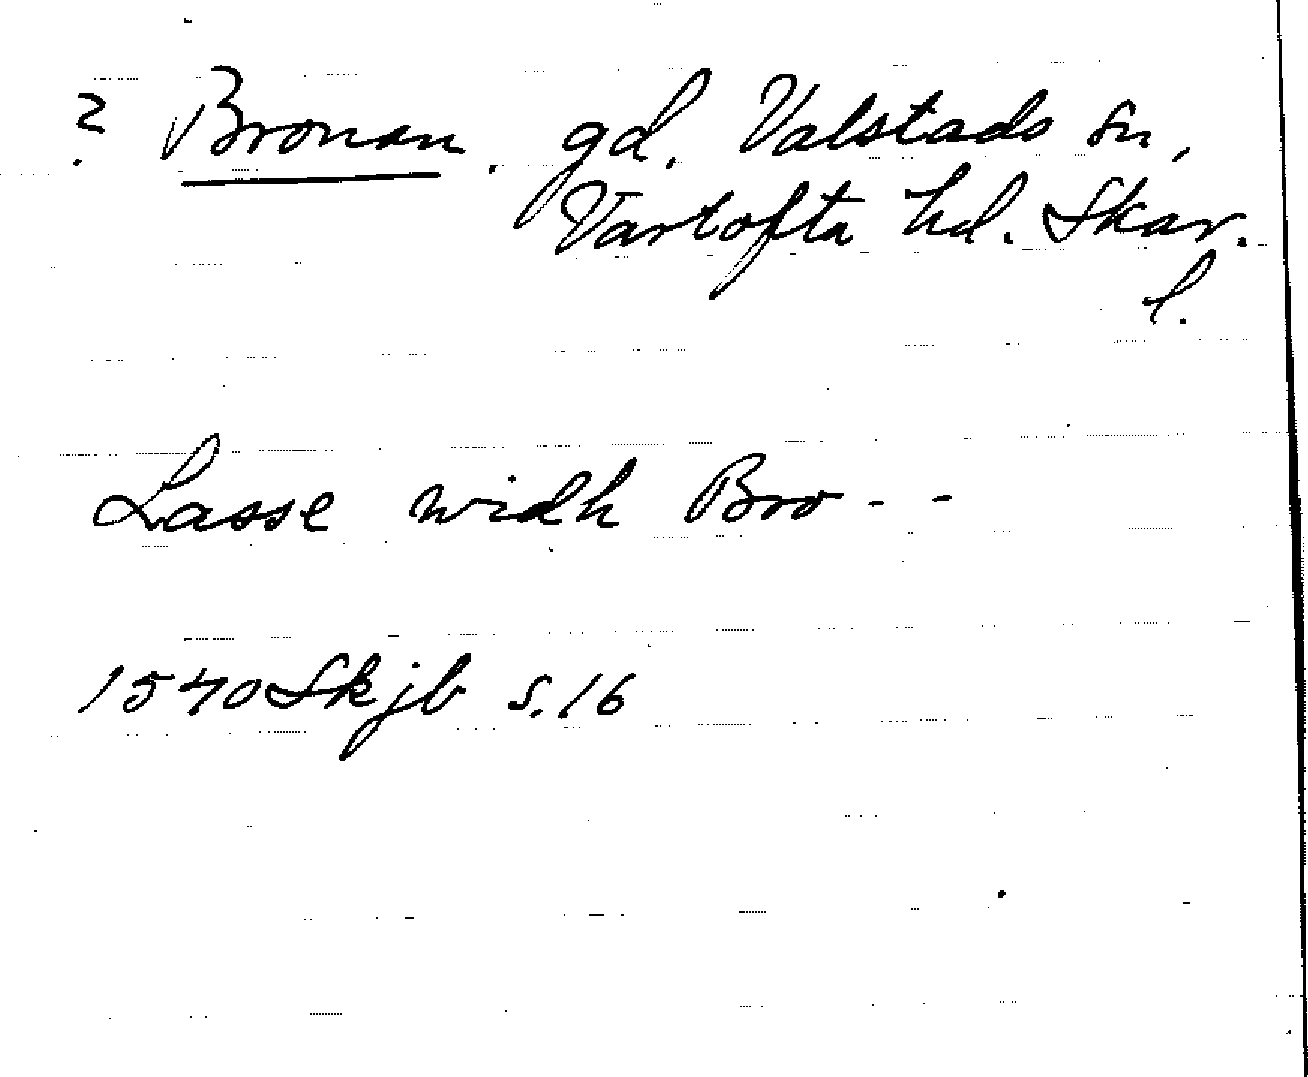 ? Bronan. gd. Valstads sn,
Vartofta hd. Skar.
l.
Lasse widh Bro - -
1540 Skjb s. 16